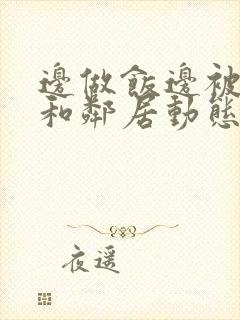 邊做飯邊被
和鄰居動態
夜遥